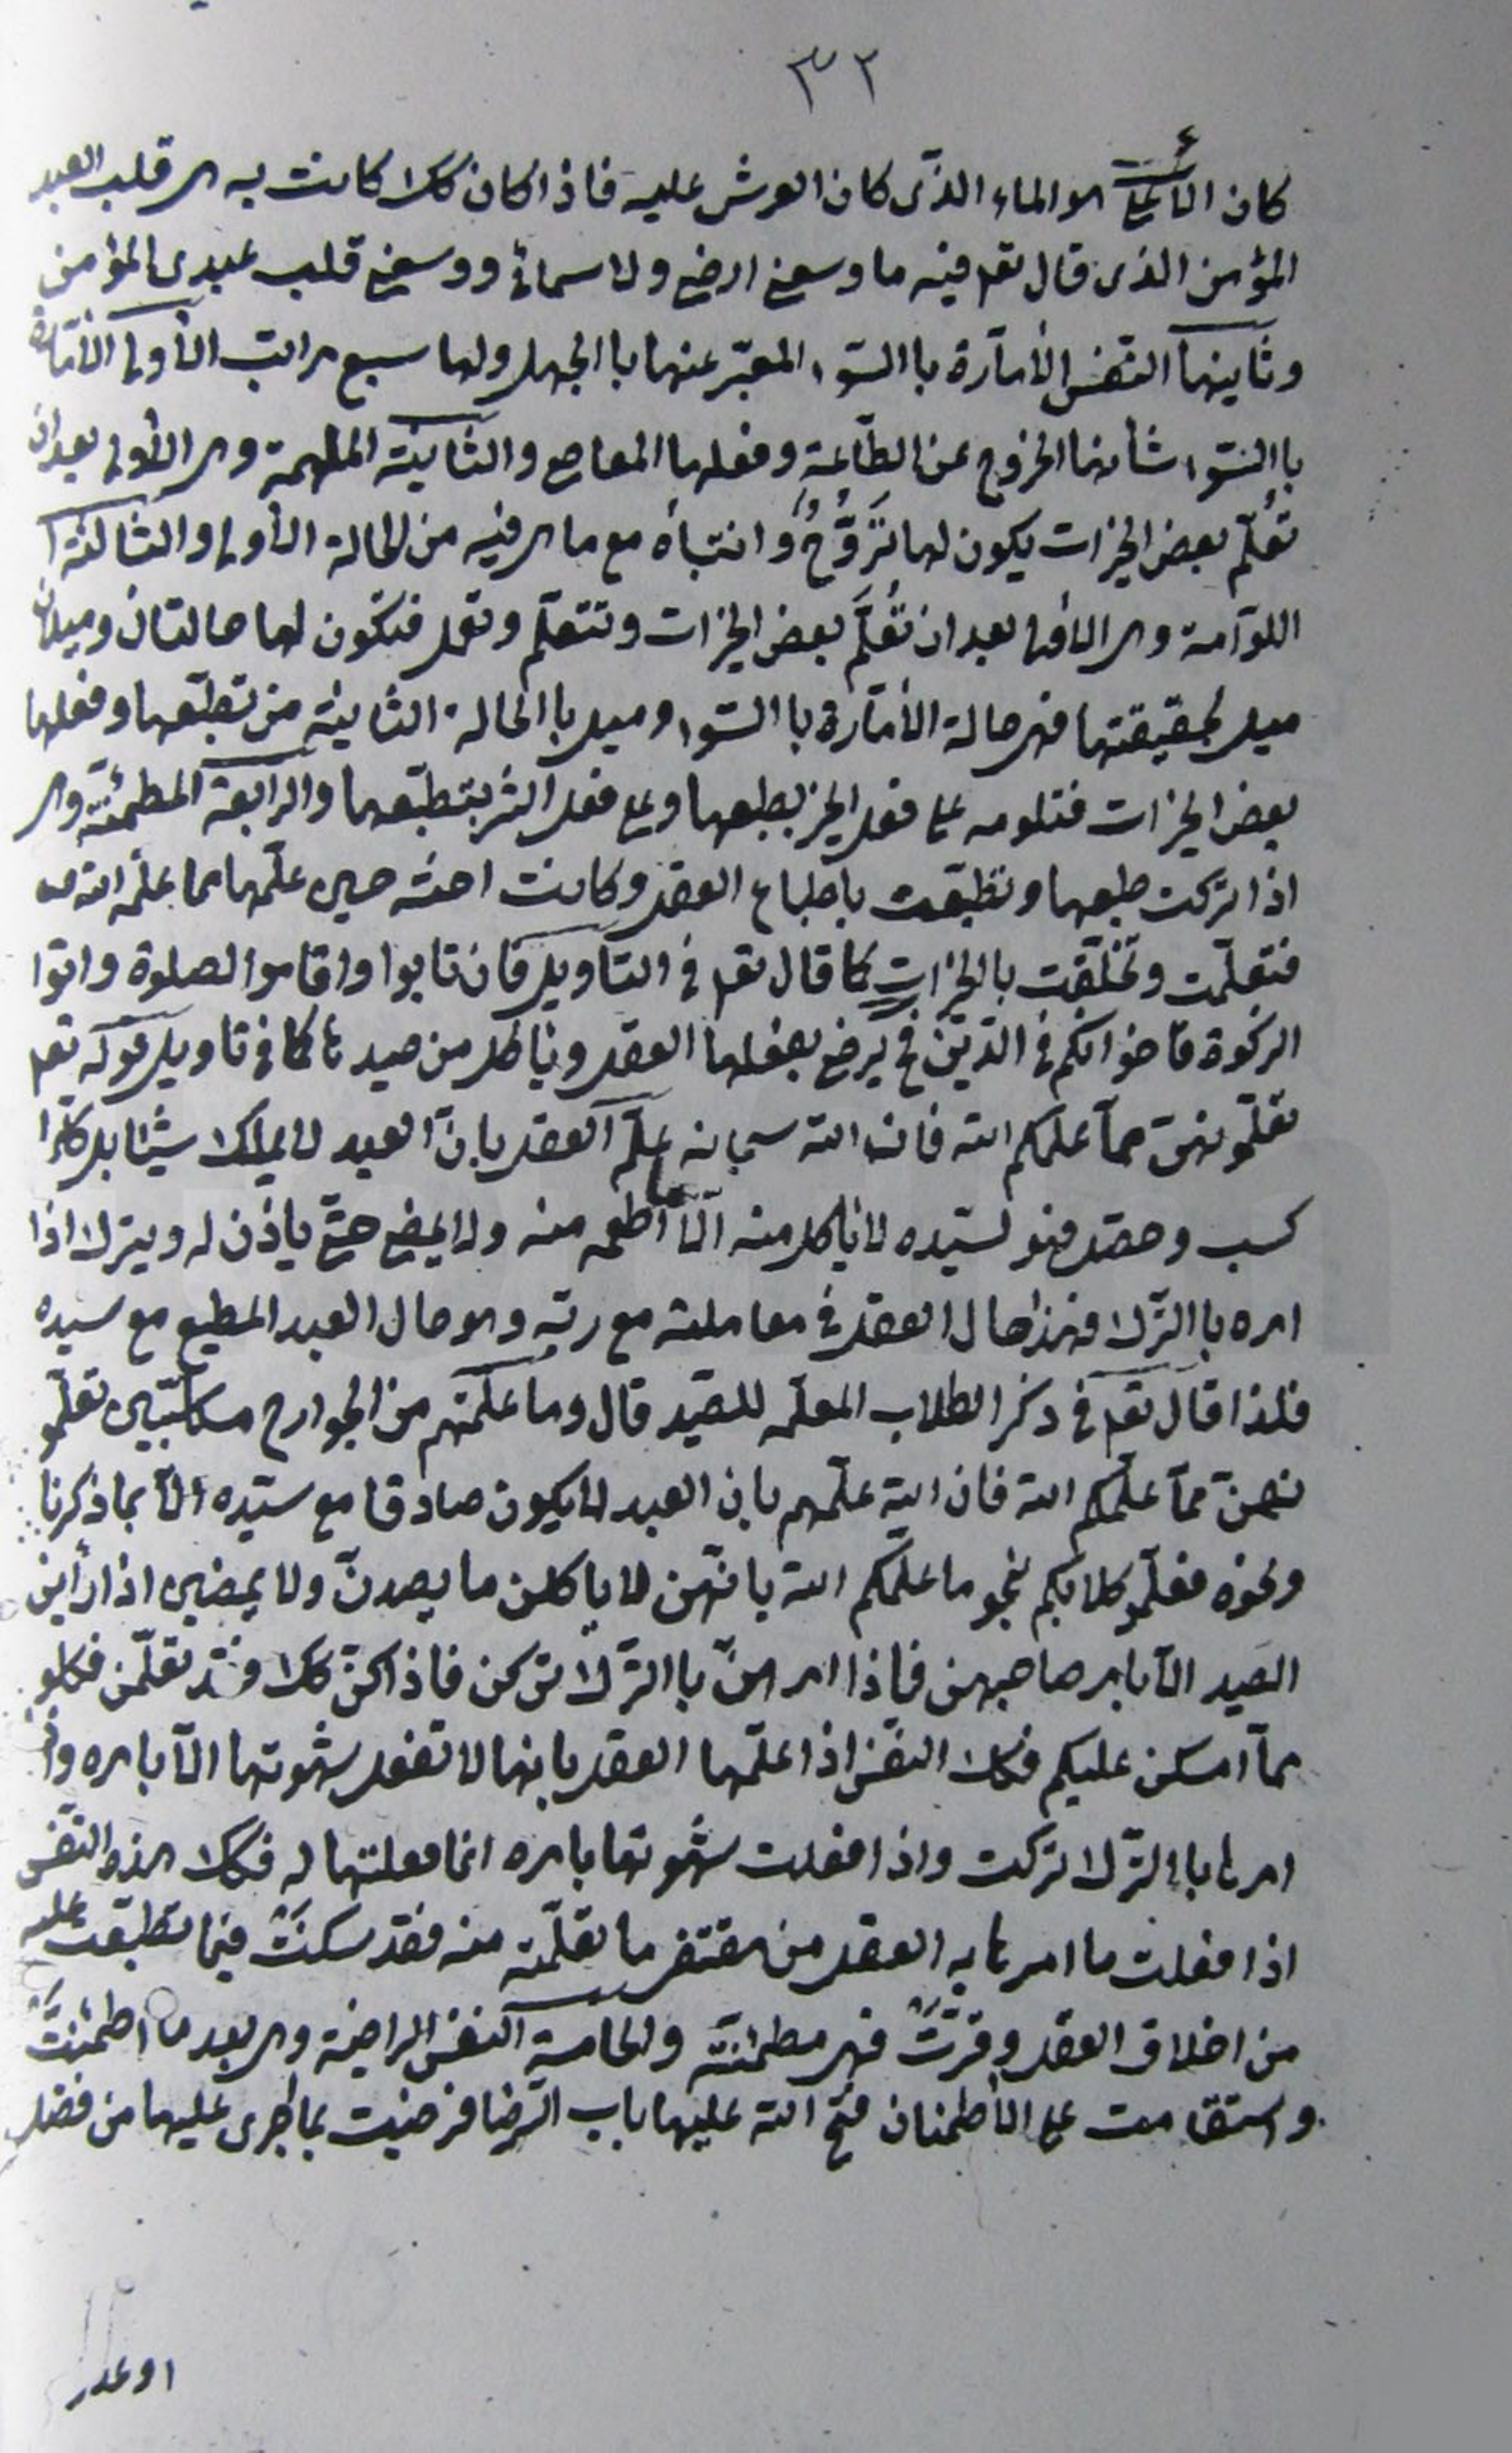 ٣٢
كان الأعلى هو الماء الذّى كان العرش عليه فاذا كان كك كانت به هى قلب العبد
المؤمن الذى قال تعم فيه ما وسعنى ارضى ولا سمائى ووسعنى قلب عبدى المؤمن
وثانيهما النّفس الأمّارة باالسّوء المعبّر عنها باالجهل ولها سبع مراتب الأولى الأمّارة
باالسّوء شأنها الخروج عن الطّاعة وفعلها المعاصى والثانية الملهمة وهى الأولى بعد ان
تُعلّم بعض الخيرات يكون لها تَرَوُّحٌ وانتباه مع ما هى فيه من الحالة الأولى والثالثة
اللوّامة وهى بعد ان تُعلَّم بعض الخيرات وتتعلّم وتعمل فتكون لها حالتان وميلان
ميل لحقيقتها فهى حالة الأمّارة باالسّوء وميل باالحالة الثانية من تطبّعها وفعلها
بعض الخيرات فتلومه على فعل الخير بطبعها وعلى فعل الشّر بتطبّعها والرابعة المطمئنّة وهى
اذا تركت طبعها وتطبّعت باطباع العقل وكانت اخته حين علّمها مما علّمه الله
فتعلّمت وتخلّقت بالخيرات كما قال تعم فى التاويل فان تابوا واقاموا الصلوة واتوا
الزكوة فاخوانكم فى الدّين فح يرضى بفعلها العقل وياكل من صيدها كما فى تاويل قوله تعم
تعلّمونهنّ ممّا علّمكم الله فان الله سبحانه علّم العقل بانّ العبد لا يملك شيئا بل كلما
كسب وحصّل فهو لسيّده لا ياكل منه الّا ما اطعمه منه ولا يمضى حتّى ياذن له ويترك اذا
امره باالتّرك فهذا حال العقل فى معاملته مع ربّه وهو حال العبد المطيع مع سيده
فلذا قال تعم فى ذكر الكلاب المعلّمه للصّيد قال وما علّمتم من الجوارح مكلّبين تعلّمو
نهنّ ممّا علّمكم الله فان الله علّمهم بان العبد لا يكون صادقا مع سيّده الّا بما ذكرنا
ونحوه فعلّمو كلابكم نحو ما علّمكم الله بانّهن لا ياكلن ما يصدن ولا يمضين اذا رأين
الصيد الّا بامر صاحبهن فاذا امرهنّ باالتّرك تركن فاذا كنّ كك فقد تعلّمن فكلو
ممّا امسكن عليكم فكك النّفس اذا علّمها العقل بانها لا تفعل شهوتها الّا بامره واذا
امرها باالترك تركت واذا فعلت شهوتها بامره انما فعلتها له فكك هذه النّفس
اذا فعلت ما امرها به العقل من مقتضى ما تعلّمته منه فقد سكنَتْ فيما تطبّعت عليه
من اخلاق العقل وقرّتْ فهى مطمئنّة والخامسة النفس الراضية وهى بعد ما اطمئنّتْ
واستقامت على الأطمنان فتح الله عليها باب الرّضا فرضيت بما جرى عليها من فضل
او عدل